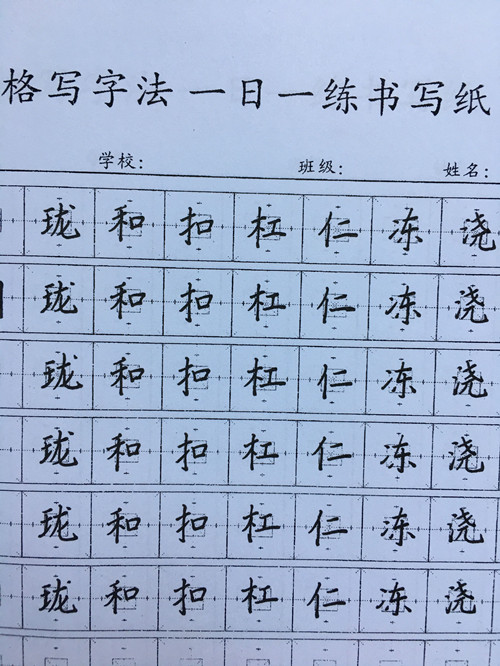 格写字法 一日一练书写纸
学校： 班级： 姓名：
珑 和 扣 杠 仁 冻 浇
珑 和 扣 杠 仁 冻 浇
珑 和 扣 杠 仁 冻 浇
珑 和 扣 杠 仁 冻 浇
珑 和 扣 杠 仁 冻 浇
珑 和 扣 杠 仁 冻 浇